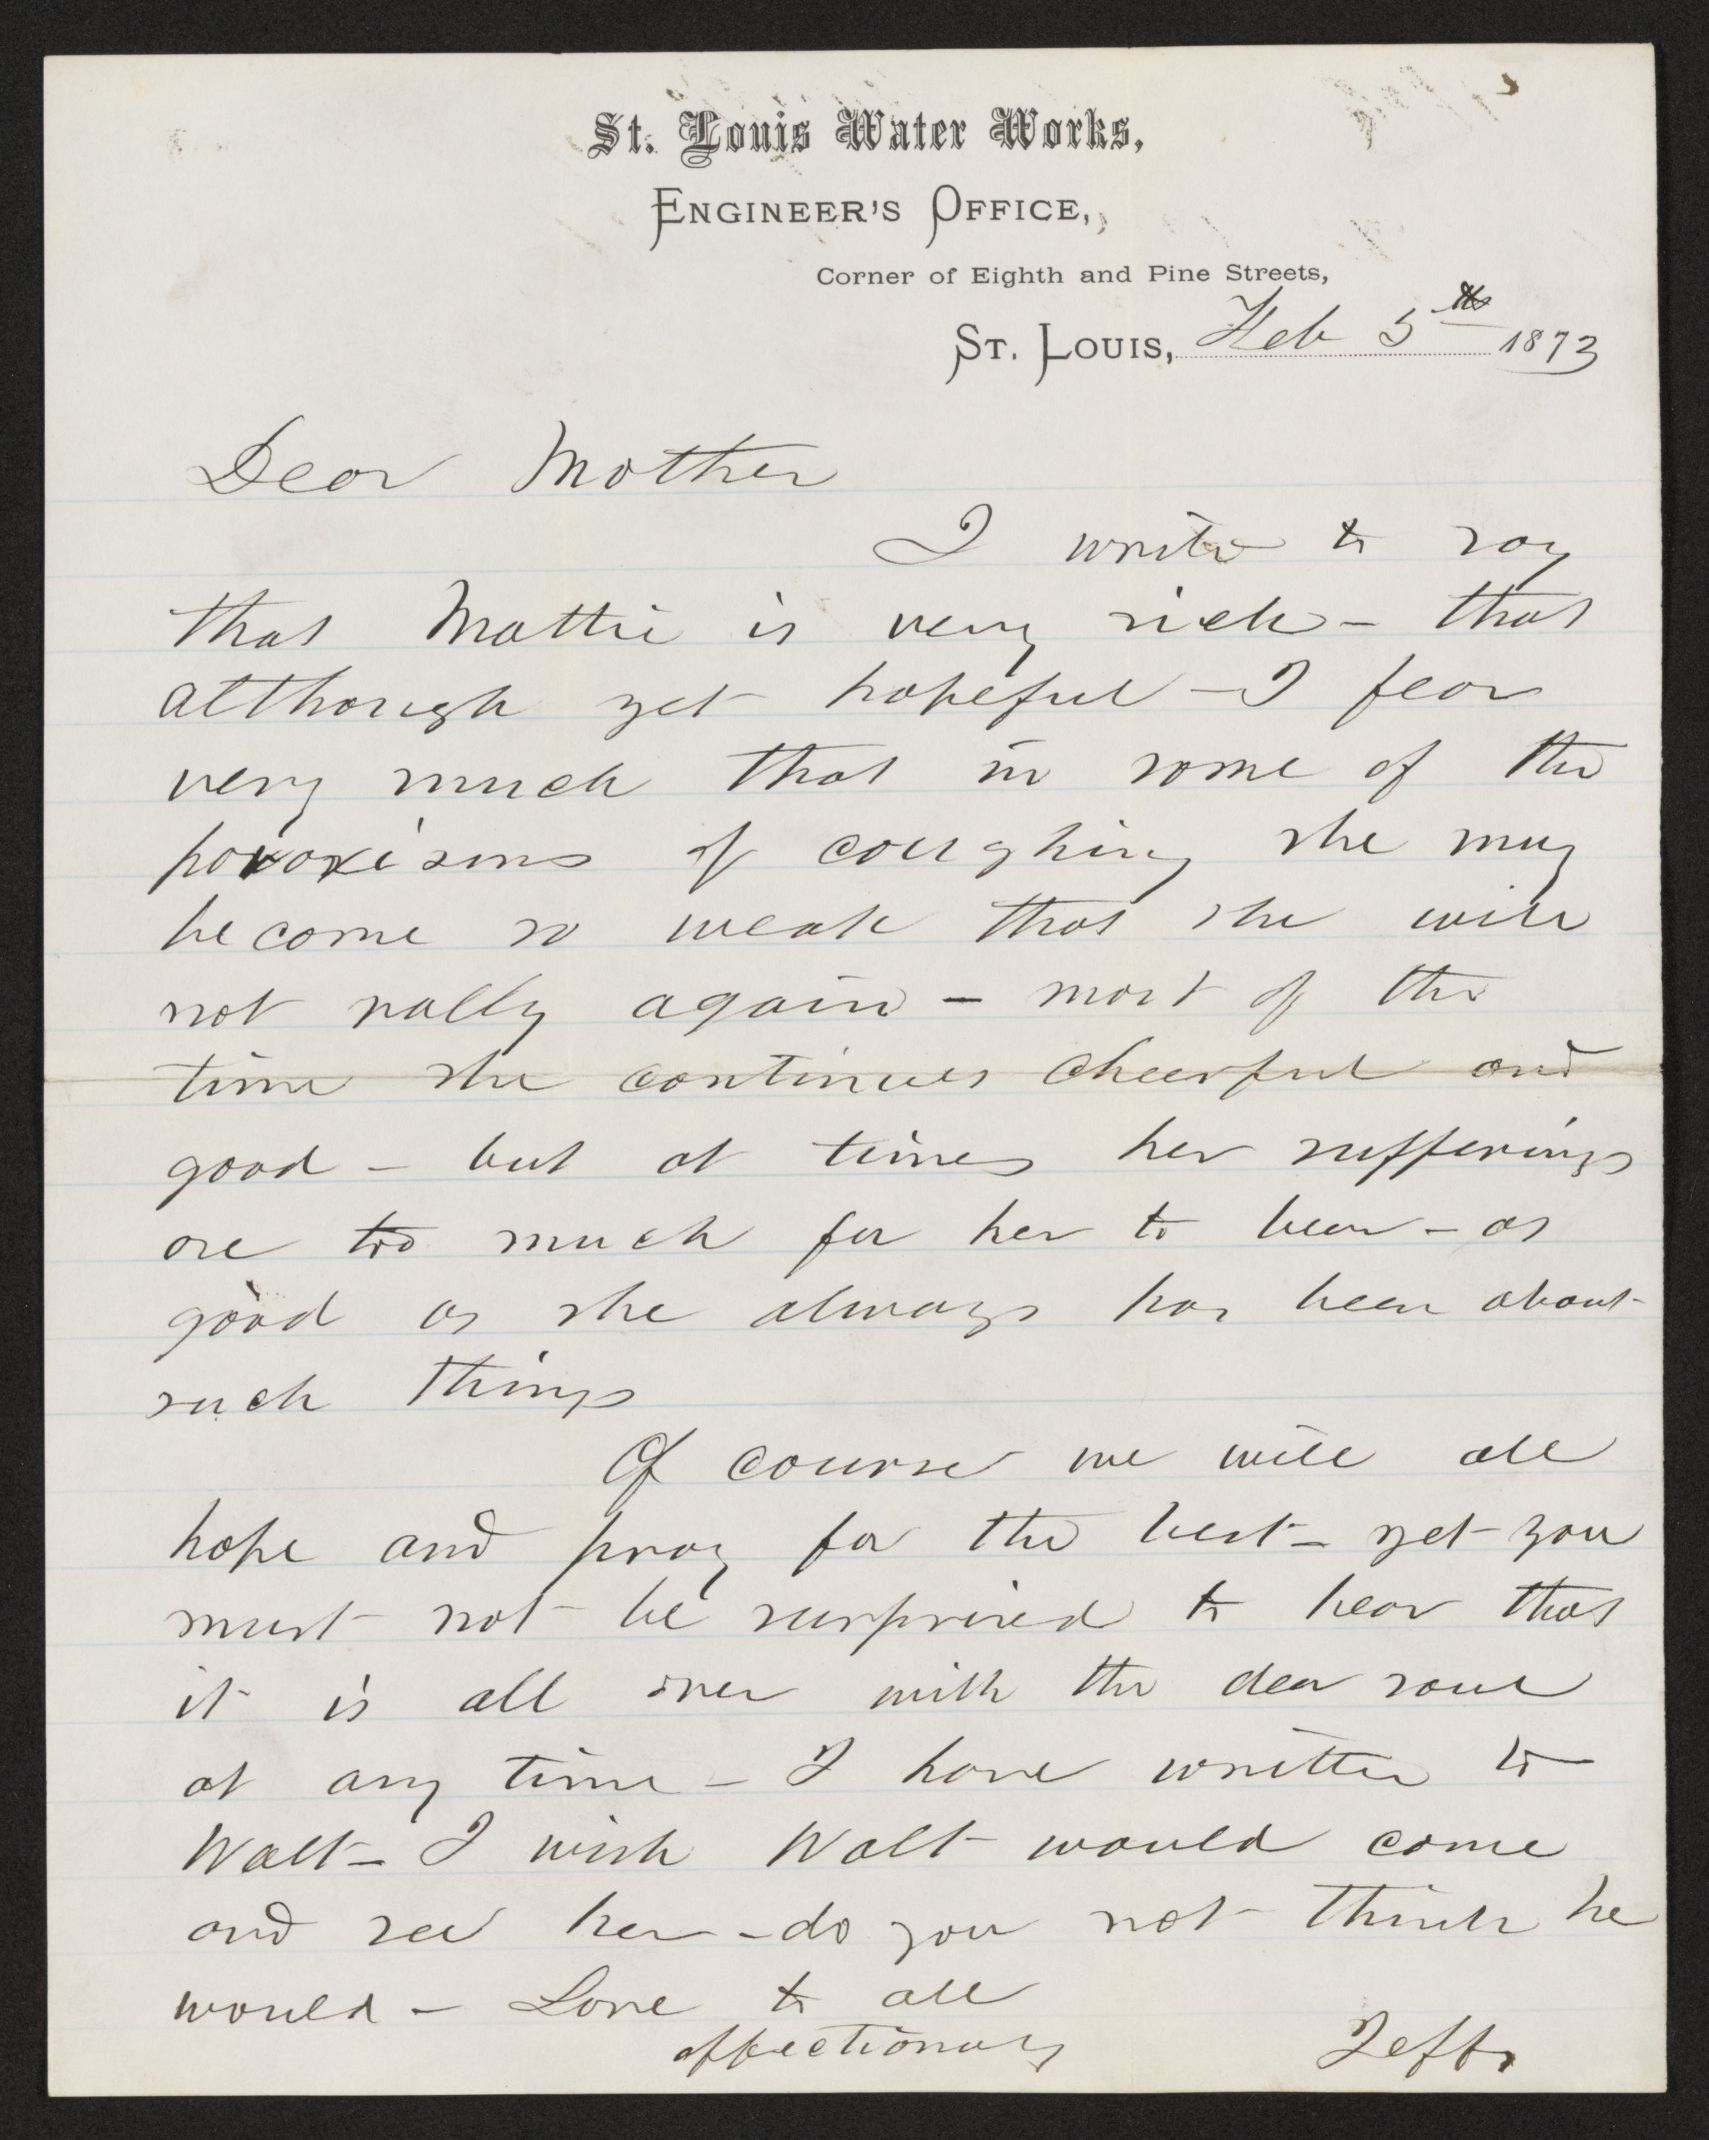 St. Louis Water Works,
ENGINEER'S OFFICE,
Corner of Eighth and Pine Streets,
ST. LOUIS, Feb 5th 1873
Dear Mother
I write to say
that Mattie is very sick – that
although yet hopeful – I fear
very much that in some of the
paroxisms of coughing she may
become so weak that she will
not rally again – most of the
time she continues cheerful and
good – but at times her sufferings
are too much for her to bear – as
good as she always has been about
such things
Of course we will all
hope and pray for the best – yet you
must not be surprised to hear that
it is all over with the dear soul
at any time – I have written to
Walt – I wish Walt would come
and see her – do you not think he
would – Love to all
affectionaly Jeff.